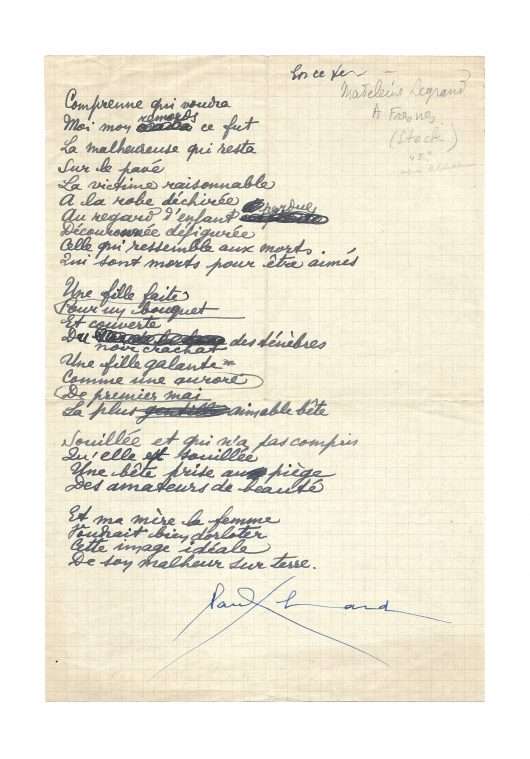 Madeleine Legrand
A Fresnes
(Stock)
Comprenne qui voudra
Moi mon remords ce fut
La malheureuse qui resta
Sur le pavé
La victime raisonnable
A la robe déchirée
Au regard d'enfant perdue
Découronnée défigurée
Celle qui ressemble aux morts
Qui sont morts pour être aimés
Une fille faite
Pour un bouquet
Et couverte
Du noir crachat des ténèbres
Une fille galante
Comme une aurore
De premier mai
La plus aimable bête
Souillée et qui n'a pas compris
Qu'elle est souillée
Une bête prise au piège
Des amateurs de beauté
Et ma mère la femme
Voudrait bien dorloter
Cette image idéale
De son malheur sur terre.
Paul Eluard